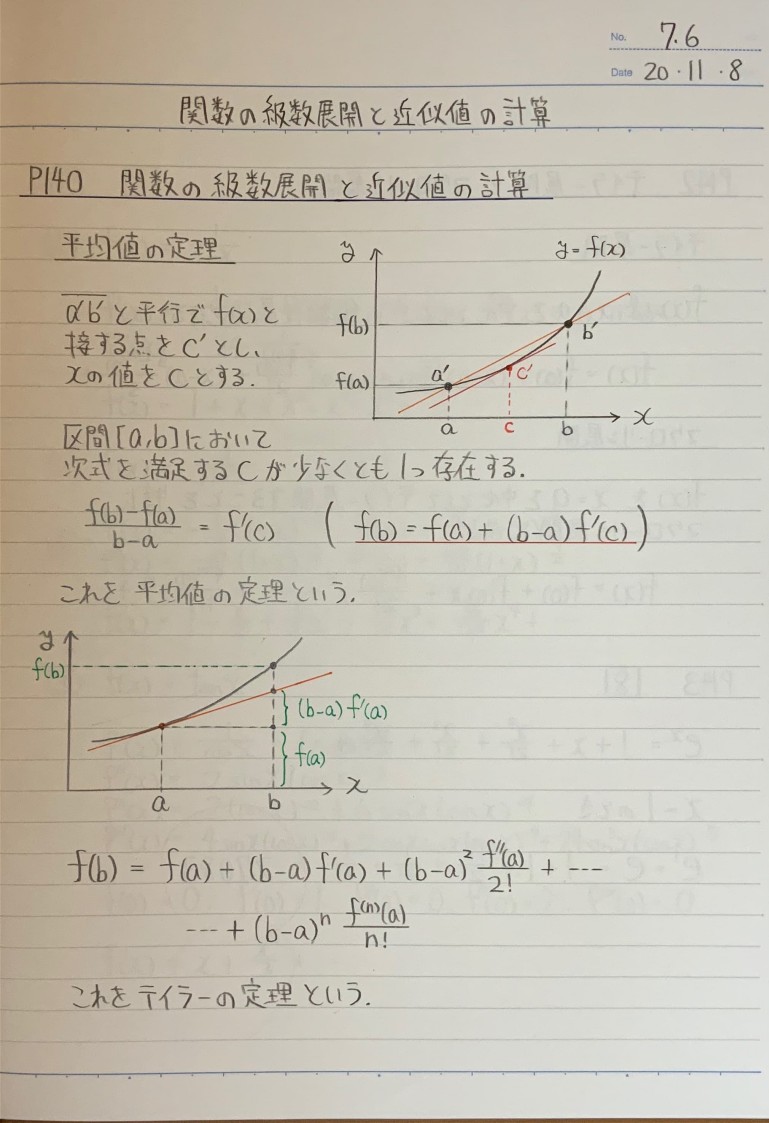 No. 7.6
Date 20・11・8
関数の級数展開と近似値の計算
P140 関数の級数展開と近似値の計算
平均値の定理
a'b'と平行でf(x)と
接する点をC'とし、
xの値をCとする.
y
y=f(x)
f(b)
b'
f(a)
a'
c'
a
c
b
x
区間[a,b]において
次式を満足するCが少なくとも1つ存在する.
(f(b)-f(a))/(b-a) = f'(c) ( f(b) = f(a) + (b-a) f'(c) )
これを平均値の定理という.
y
f(b)
}(b-a) f'(a)
}f(a)
a
b
x
f(b) = f(a) + (b-a) f'(a) + (b-a)² f''(a)/2! + ---
--- + (b-a)ⁿ f⁽ⁿ⁾(a)/n!
これをテイラーの定理という.